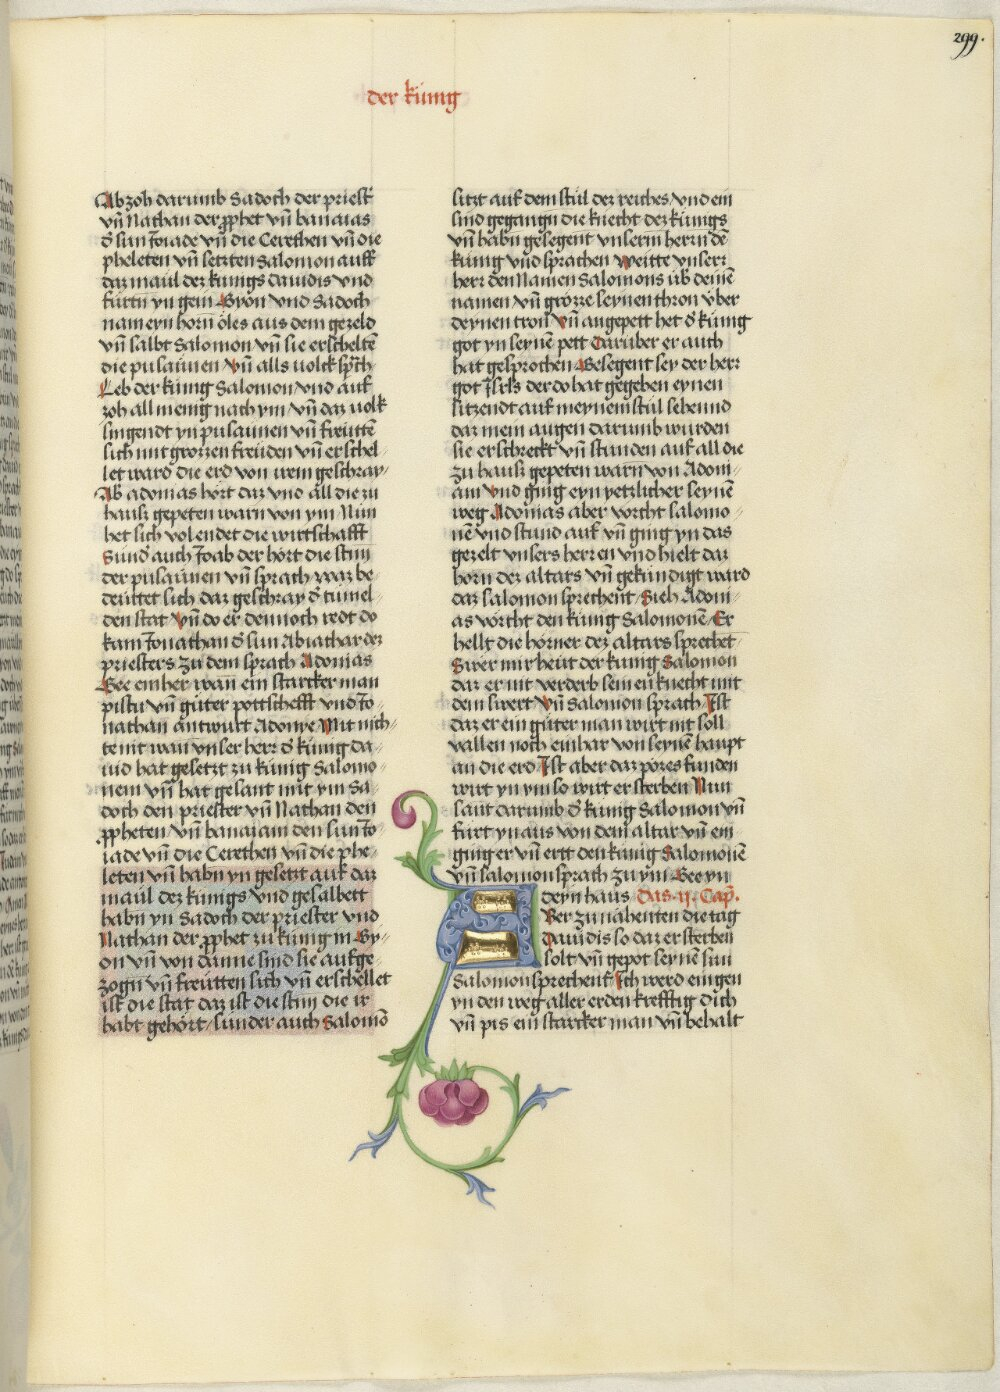 299.
der künig
Ab zoh darumb Sadoch der priest
vn̄ Nathan der ꝓphet vn̄ banaias
d̕ sun Joiade vn̄ die Cerethen vn̄ die
pheleten vn̄ setzten Salomon auff
daz maul dez künigs dauidis vnd
fürtn yn gein Gyon Vnd Sadoch
nam eyn horn öles aus dem gezeld
vn̄ salbt Salomon vn̄ sie erschelten̄
die pusaunen Vn̄ alls volck sp̄ch
Leb der künig Salomon vnd auf
zoh all menig nach ym vn̄ daz volk
singendt yn pusaunen vn̄ frewten̄
sich mit grozzen freuden vn̄ erschel
let ward die erd von irem geschray
Ab adonias hört daz vnd all die zu
hausz gepeten warn von ym Nun
het sich volendet die wirtschafft
Sund̕ auch Joab der hört die stim
der pusaunen vn̄ sprach waz be
deuttet sich daz geschray d̕ tumel
den stat Vn̄ do er dennoch redt do
kam Jonathan d̕ sun Abiathar dez
priesters Zu dem sprach Adonias
Gee einher wan̄ ein starcker man
pistu vn̄ guter pottschefft vnd Jo
nathan antwurt Adonye Mit nich
te nit wan vnser herr d̕ künig da
uid hat gesetzt zu künig Salomo
nem vn̄ hat gesant mit ym Sa
doch den priester vn̄ Nathan den
ꝓpheten vn̄ banaiam den sun Jo
iade vn̄ die Cerethen vn̄ die phe
leten vn̄ habn yn gesetzt auf daz
maul dez künigs Vnd gesalbett
habn yn Sadoch der priester vnd
Nathan der ꝓphet zu künig in Gy
on vn̄ von danne sind sie aufge
zogn vn̄ frewtten sich vn̄ erschellet
ist die stat daz ist die stim die ir
habt gehört sunder auch Salomō
sitzt auf dem stul dez reiches vnd ein
sind gegangn die knecht dez künigs
vn̄ habn gesegent vnserm herrn dē
künig vnd sprachen Weitte vnserr
herr den Namen Salomons üb̕ deinē
namen vn̄ grözze seynen thron über
deynen tron Vn̄ angepett het d̕ künig
got yn seynē pett Darüber er auch
hat gesprochen Gesegent sey der herr
got Jsrls der do hat gegeben eynen
sitzendt auf meynem stul sehennd
daz mein augen darumb wurden
sie erschreckt vn̄ stunden auf all die
zu hausz gepeten warn von Adoni
am Vnd ging eyn yetzlicher seynē
weg Adonias aber vorcht salomo
nē vnd stund auf vn̄ ging yn das
gezelt vnsers herren vnd hielt daz
horn dez altars vn̄ gekündigt ward
daz salomon sprechent Sieh Adoni
as vorcht den künig Salomonē Er
hellt die hörner dez altars sprechet
Swer mir heut der künig Salomon
daz er nit verderb seinen knecht mit
dem swert Vn̄ Salomon sprach Ist
daz er ein guter man wirt nit soll
vallen noch ein har von seynē haupt
an die erd Ist aber daz pözes funden
wirt yn ym so wirt er sterben Nun
sant darumb d̕ künig Salomon vn̄
fürt yn aus von dem altar vn̄ ein
ging er vn̄ ertt den künig Salomonē
vn̄ salomon sprach zu ym Gee yn
deyn haus Das .ij. Cap̄.
Ber zu nähenten die tag
Dauidis so daz er sterben
solt vn̄ gepot seynē sun
Salomon sprechent Ich werd eingen
yn den weg aller erden krefftig dich
vn̄ pis ein starcker man vn̄ behalt